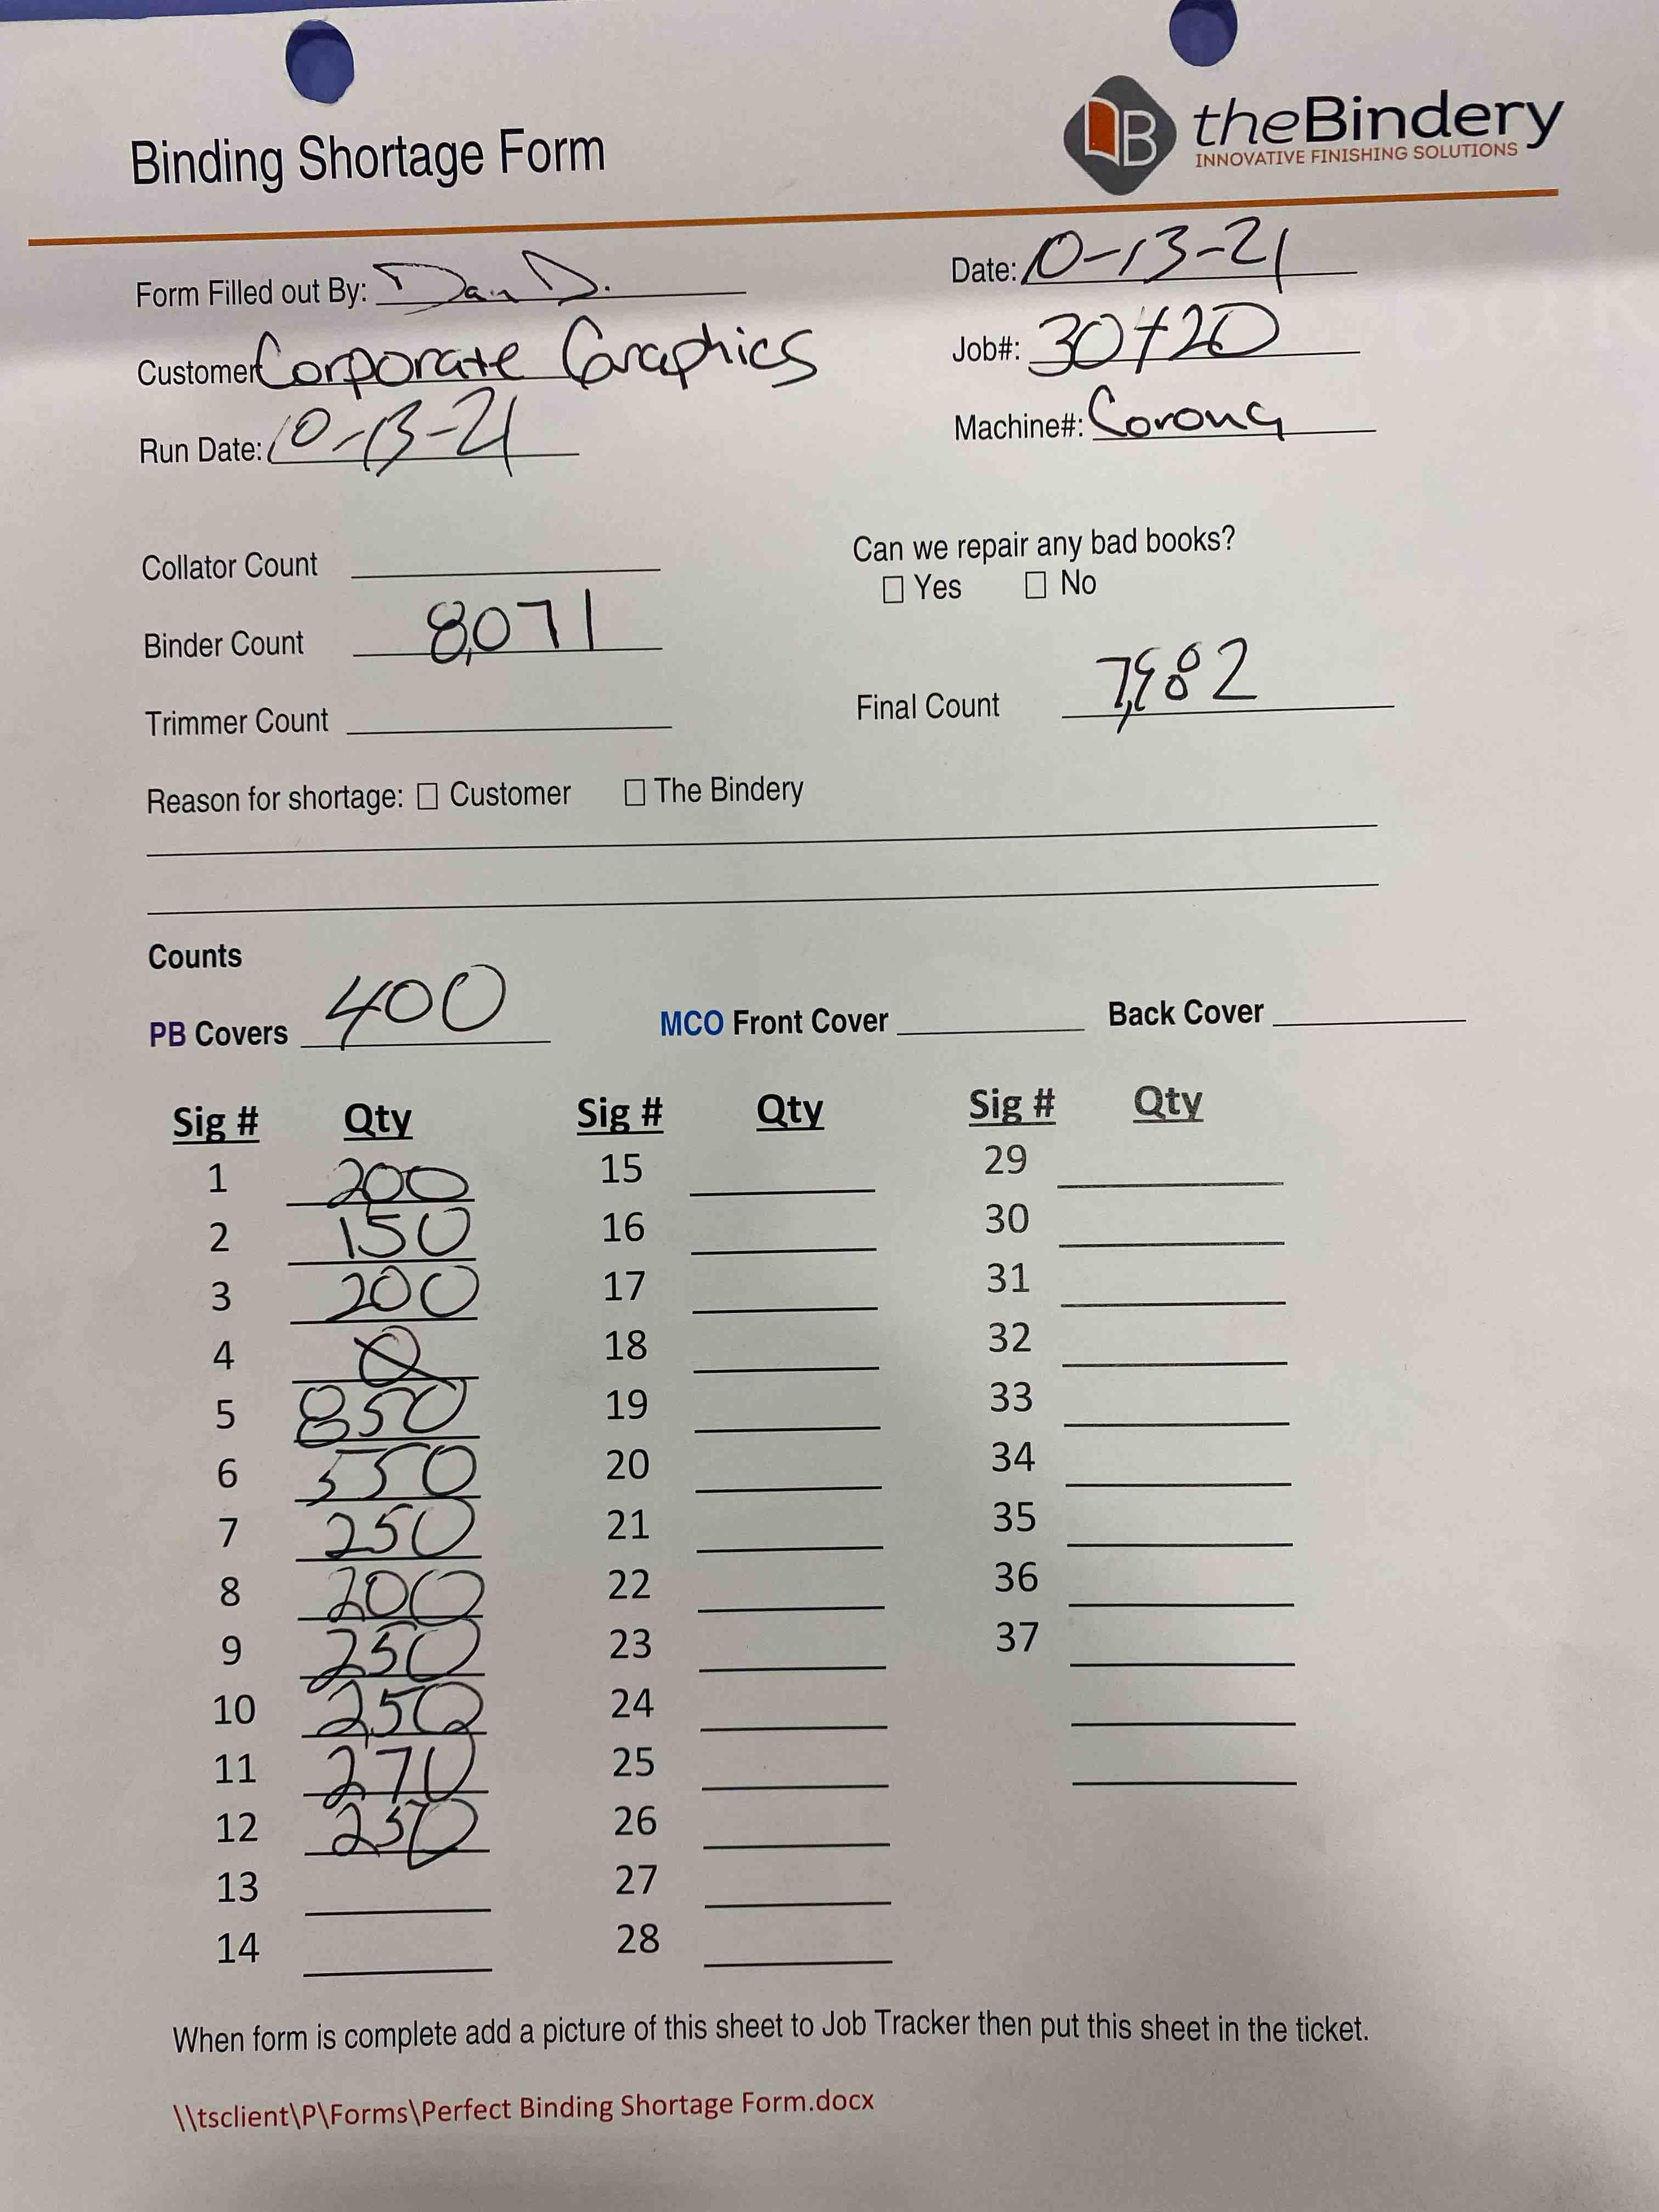 Binding Shortage Form
theBindery
INNOVATIVE FINISHING SOLUTIONS
Form Filled out By: Dan D.
Date: 10-13-21
Customer Corporate Graphics
Job#: 30720
Run Date: 10-13-21
Machine#: Corona
Collator Count
Can we repair any bad books?
☐ Yes ☐ No
Binder Count 8,071
Trimmer Count
Final Count 7,982
Reason for shortage: ☐ Customer ☐ The Bindery
Counts
PB Covers 400 MCO Front Cover Back Cover
Sig # Qty Sig # Qty Sig # Qty
1 200 15 29
2 150 16 30
3 200 17 31
4 0 18 32
5 850 19 33
6 550 20 34
7 250 21 35
8 200 22 36
9 250 23 37
10 250 24
11 270 25
12 250 26
13 27
14 28
When form is complete add a picture of this sheet to Job Tracker then put this sheet in the ticket.
\\tsclient\P\Forms\Perfect Binding Shortage Form.docx